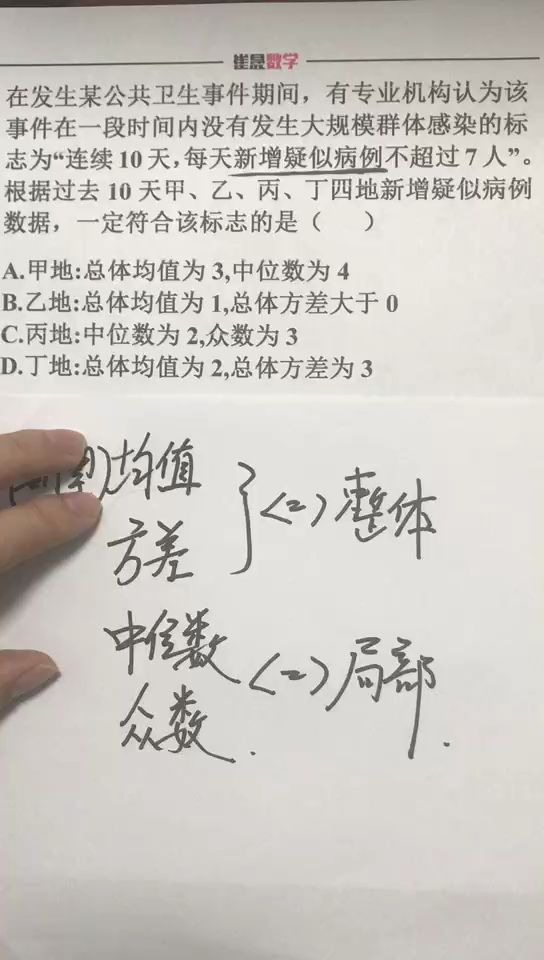 崔晟数学
在发生某公共卫生事件期间，有专业机构认为该
事件在一段时间内没有发生大规模群体感染的标
志为“连续10天，每天新增疑似病例不超过7人”。
根据过去10天甲、乙、丙、丁四地新增疑似病例
数据，一定符合该标志的是（    ）
A.甲地:总体均值为3,中位数为4
B.乙地:总体均值为1,总体方差大于0
C.丙地:中位数为2,众数为3
D.丁地:总体均值为2,总体方差为3
均值
方差
<=>整体
中位数
众数.
<=>局部.